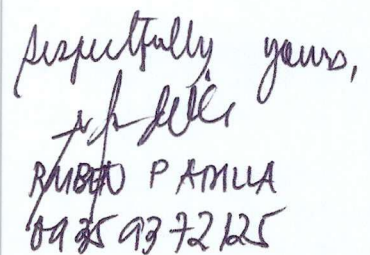 Respectfully yours,
RUBEN PADILLA
09359372125